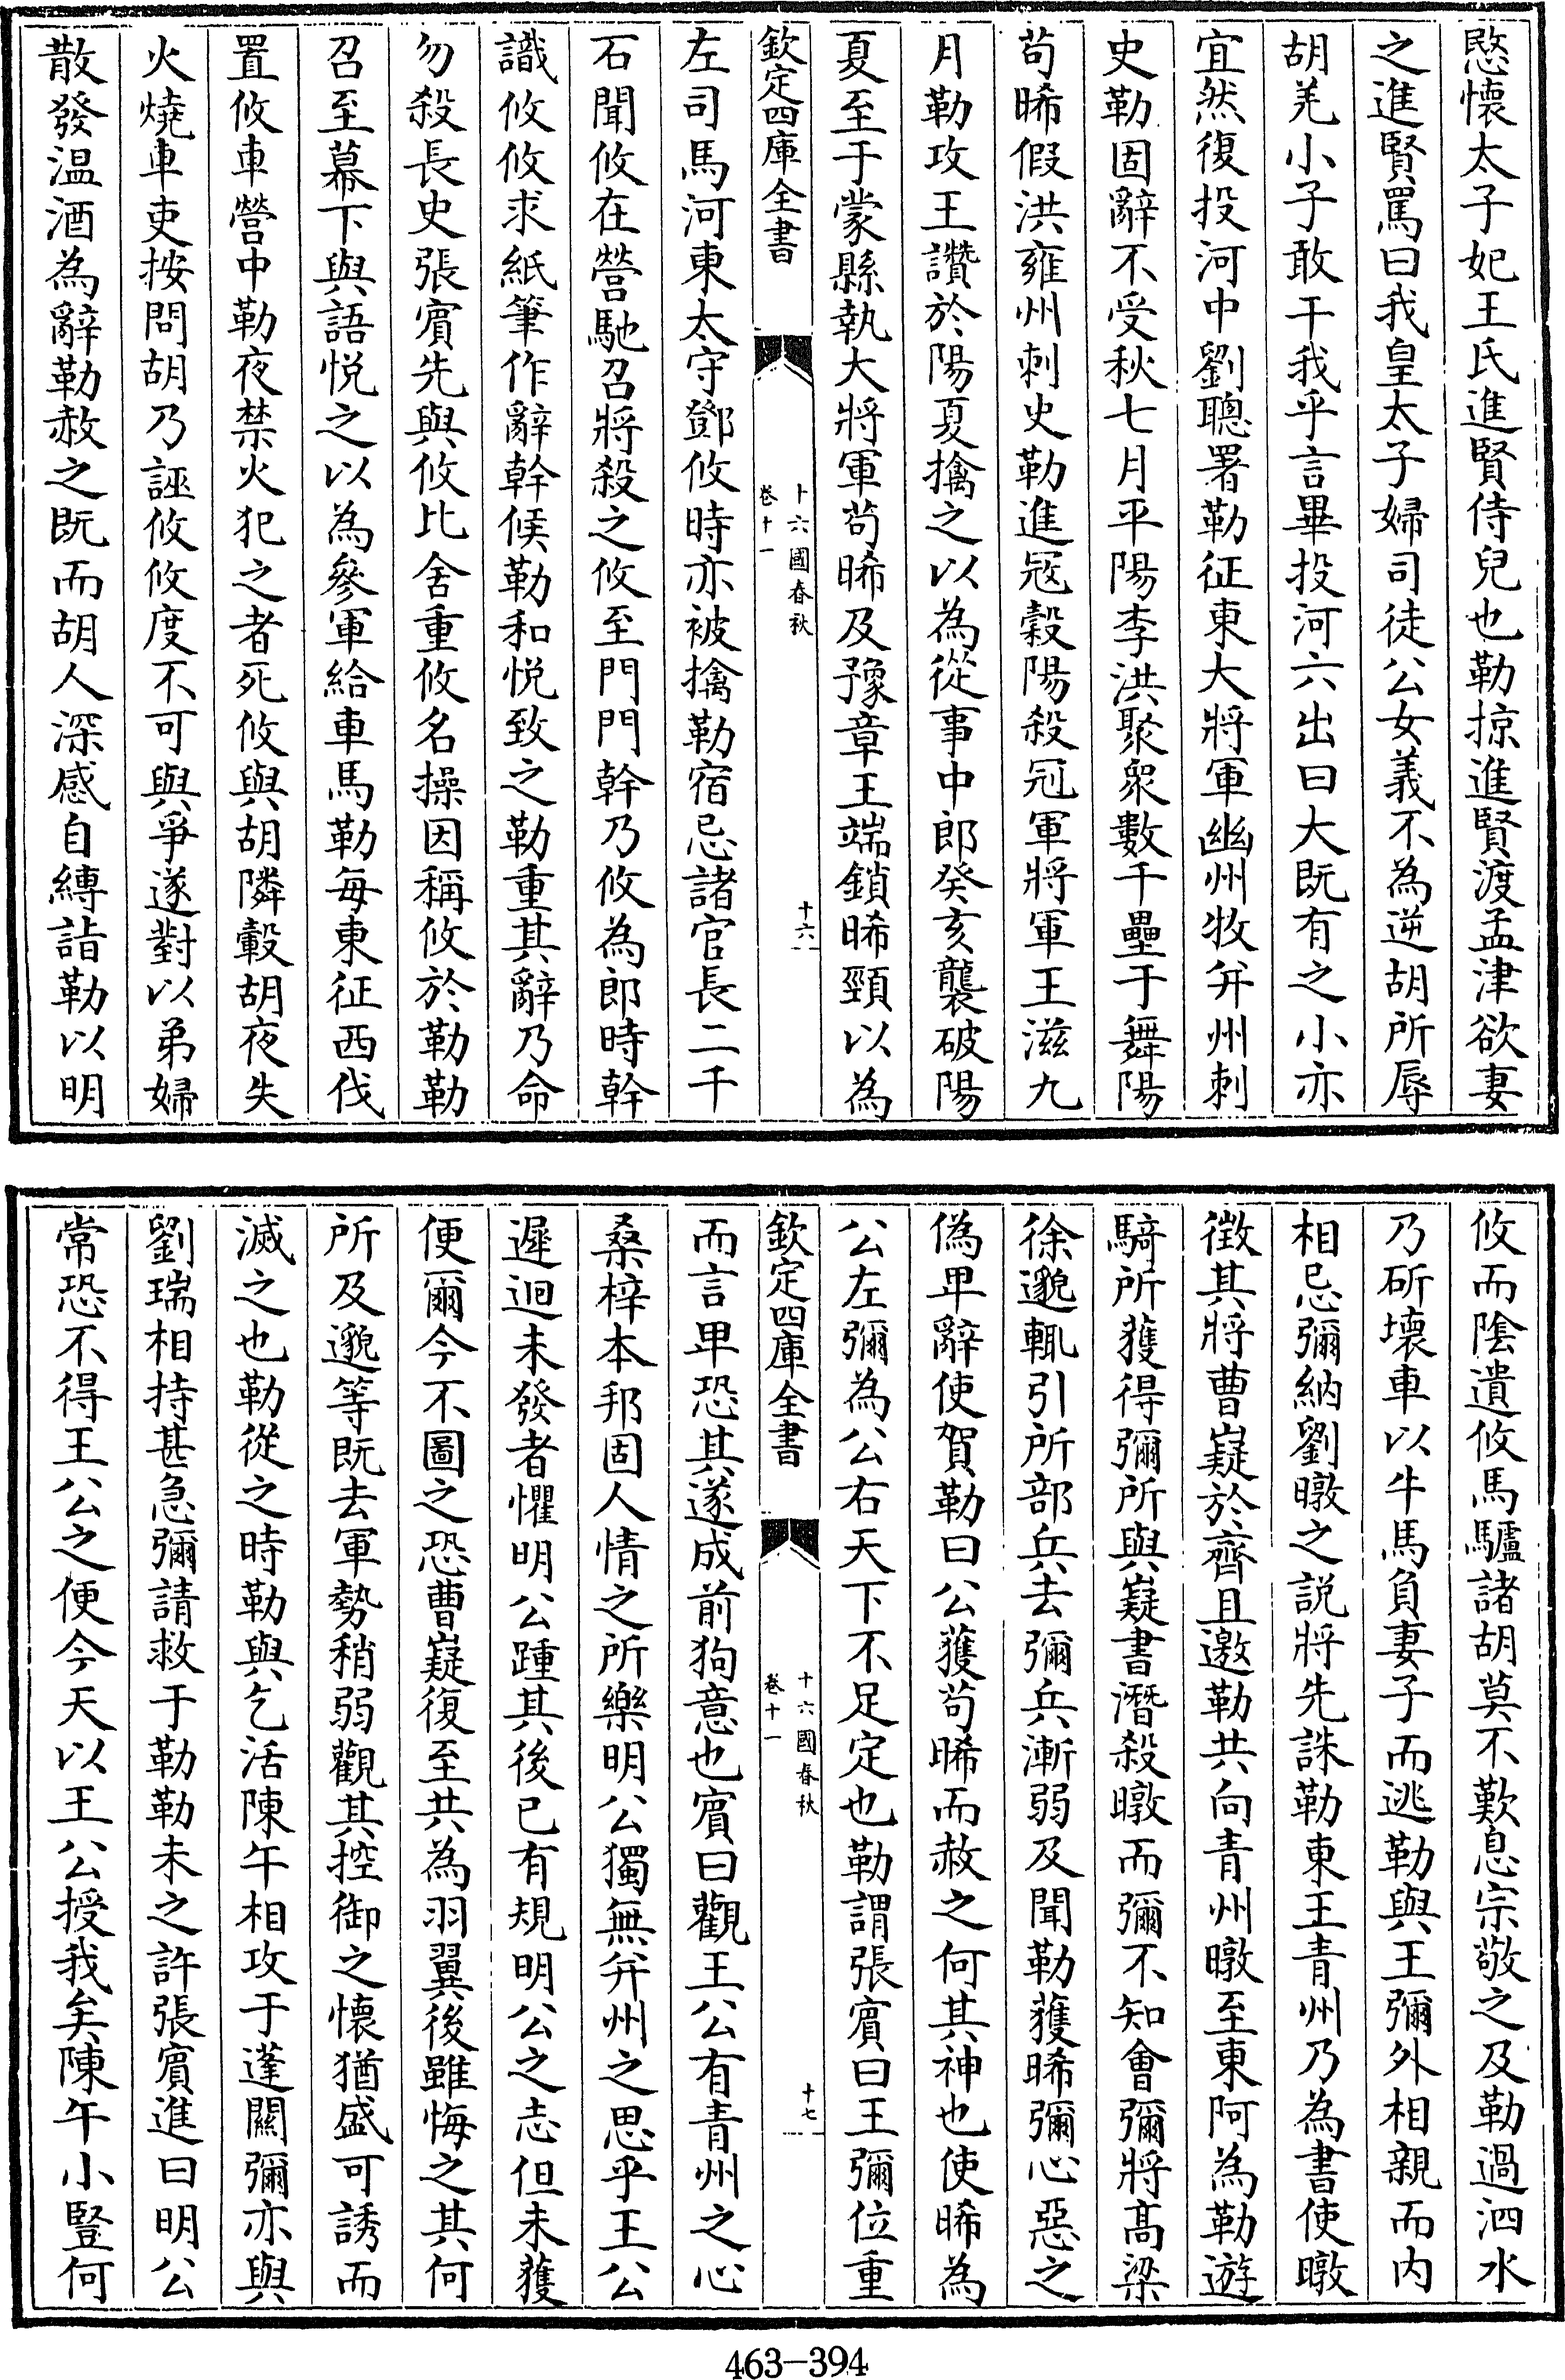 愍懷太子妃王氏進賢侍兒也勒掠進賢渡孟津欲妻
之進賢罵曰我皇太子婦司徒公女義不為逆胡所辱
胡羌小子敢干我乎言畢投河六出曰大既有之小亦
宜然復投河中劉聰署勒征東大將軍幽州牧并州刺
史勒固辭不受秋七月平陽李洪聚衆數千壘于舞陽
苟晞假洪雍州刺史勒進冦穀陽殺冠軍將軍王滋九
月勒攻王讚於陽夏擒之以為從事中郎癸亥襲破陽
夏至于蒙縣執大將軍苟晞及豫章王端鎖晞頸以為
欽定四庫全書
十六國春秋
卷十一
十六
左司馬河東太守鄧攸時亦被擒勒宿忌諸官長二千
石聞攸在營馳召將殺之攸至門門幹乃攸為郎時幹
識攸攸求紙筆作辭幹候勒和悦致之勒重其辭乃命
勿殺長史張賓先與攸比舍重攸名操因稱攸於勒勒
召至幕下與語悦之以為參軍給車馬勒每東征西伐
置攸車營中勒夜禁火犯之者死攸與胡隣轂胡夜失
火燒車吏按問胡乃誣攸攸度不可與爭遂對以弟婦
散發温酒為辭勒赦之既而胡人深感自縛詣勒以明
攸而陰遺攸馬驢諸胡莫不歎息宗敬之及勒過泗水
乃斫壞車以牛馬負妻子而逃勒與王彌外相親而内
相忌彌納劉暾之説將先誅勒東王青州乃為書使暾
徴其將曹嶷於齊且邀勒共向青州暾至東阿為勒遊
騎所獲得彌所與嶷書潛殺暾而彌不知會彌將高梁
徐邈輒引所部兵去彌兵漸弱及聞勒獲晞彌心惡之
偽卑辭使賀勒曰公獲苟晞而赦之何其神也使晞為
公左彌為公右天下不足定也勒謂張賓曰王彌位重
欽定四庫全書
十六國春秋
卷十一
十七
而言卑恐其遂成前狗意也賓曰觀王公有青州之心
桑梓本邦固人情之所樂明公獨無并州之思乎王公
遲迴未發者懼明公踵其後已有規明公之志但未獲
便爾今不圖之恐曹嶷復至共為羽翼後雖悔之其何
所及邈等既去軍勢稍弱觀其控御之懷猶盛可誘而
滅之也勒從之時勒與乞活陳午相攻于蓬關彌亦與
劉瑞相持甚急彌請救于勒勒未之許張賓進曰明公
常恐不得王公之便今天以王公授我矣陳午小豎何
463-394